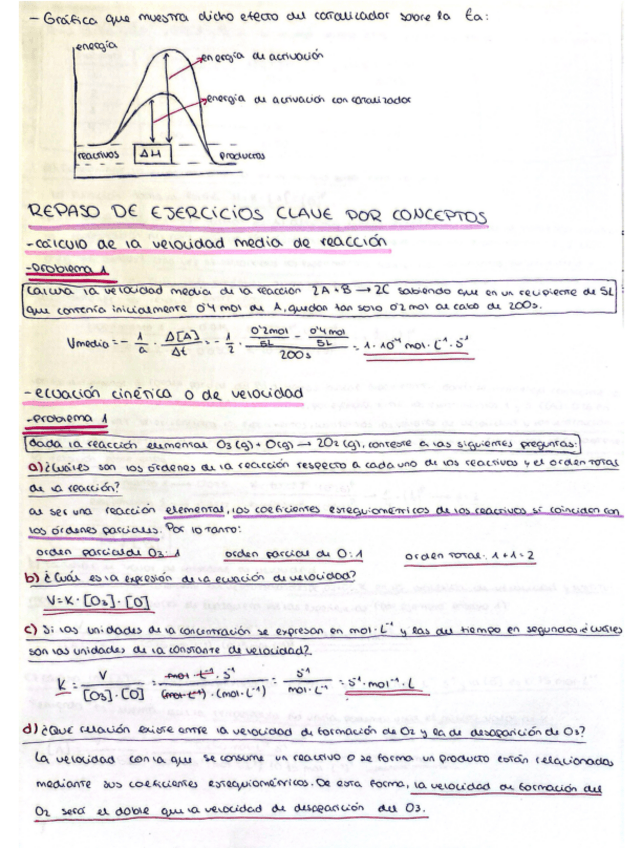 - Gráfica que muestra dicho efecto del catalizador sobre la Ea:
energía
energía de activación
energía de activación con catalizador
reactivos ΔH productos
REPASO DE EJERCICIOS CLAVE POR CONCEPTOS
- cálculo de la velocidad media de reacción
- problema 1
Calcula la velocidad media de la reacción 2A + B → 2C sabiendo que en un recipiente de 5L
que contenía inicialmente 0'4 mol de A, quedan tan solo 0'2 mol al cabo de 200s.
Vmedia = - 1/a · Δ[A]/Δt = - 1/2 · (0'2mol/5L - 0'4mol/5L)/200s = 1·10⁻⁴ mol·L⁻¹·s⁻¹
- ecuación cinética o de velocidad
- problema 1
Dada la reacción elemental O3(g) + O(g) → 2O2(g), conteste a las siguientes preguntas:
a) ¿Cuáles son los órdenes de la reacción respecto a cada uno de los reactivos y el orden total
de la reacción?
al ser una reacción elemental, los coeficientes estequiométricos de los reactivos sí coinciden con
los órdenes parciales. Por lo tanto:
orden parcial de O3: 1 orden parcial de O: 1 orden total: 1+1=2
b) ¿Cuál es la expresión de la ecuación de velocidad?
V=K·[O3]·[O]
c) Si las unidades de la concentración se expresan en mol·L⁻¹ y las del tiempo en segundos ¿cuáles
son las unidades de la constante de velocidad?
K = V/([O3]·[O]) = (mol·L⁻¹·s⁻¹)/((mol·L⁻¹)·(mol·L⁻¹)) = s⁻¹/(mol·L⁻¹) = s⁻¹·mol⁻¹·L
d) ¿Que relación existe entre la velocidad de formación de O2 y la de desaparición de O3?
La velocidad con la que se consume un reactivo o se forma un producto están relacionadas
mediante sus coeficientes estequiométricos. De esta forma, la velocidad de formación del
O2 será el doble que la velocidad de desaparición del O3.